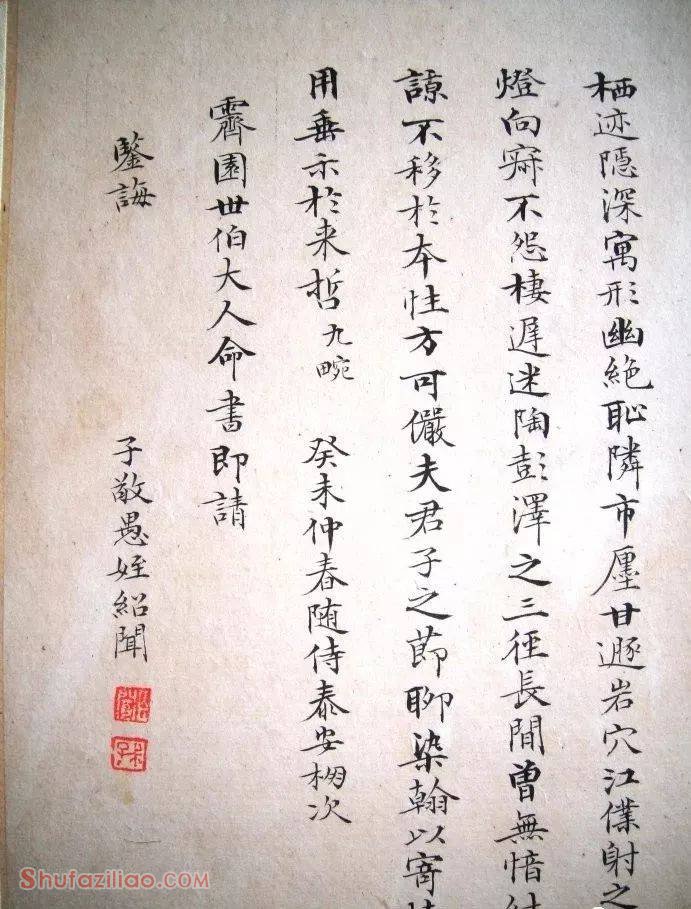 栖迹隱深寓形幽絶恥隣市廛甘遯岩穴江僕射之
燈向寂不怨棲遲迷陶彭澤之三徑長閒曾無愔
諒不移於本性方可儷夫君子之節聊染翰以寄
用垂示於来哲九畹 癸未仲春随侍泰安棚次
霽園世伯大人命書即請
鑒誨
子敬愚姪紹聞
Shufaziliao.COM